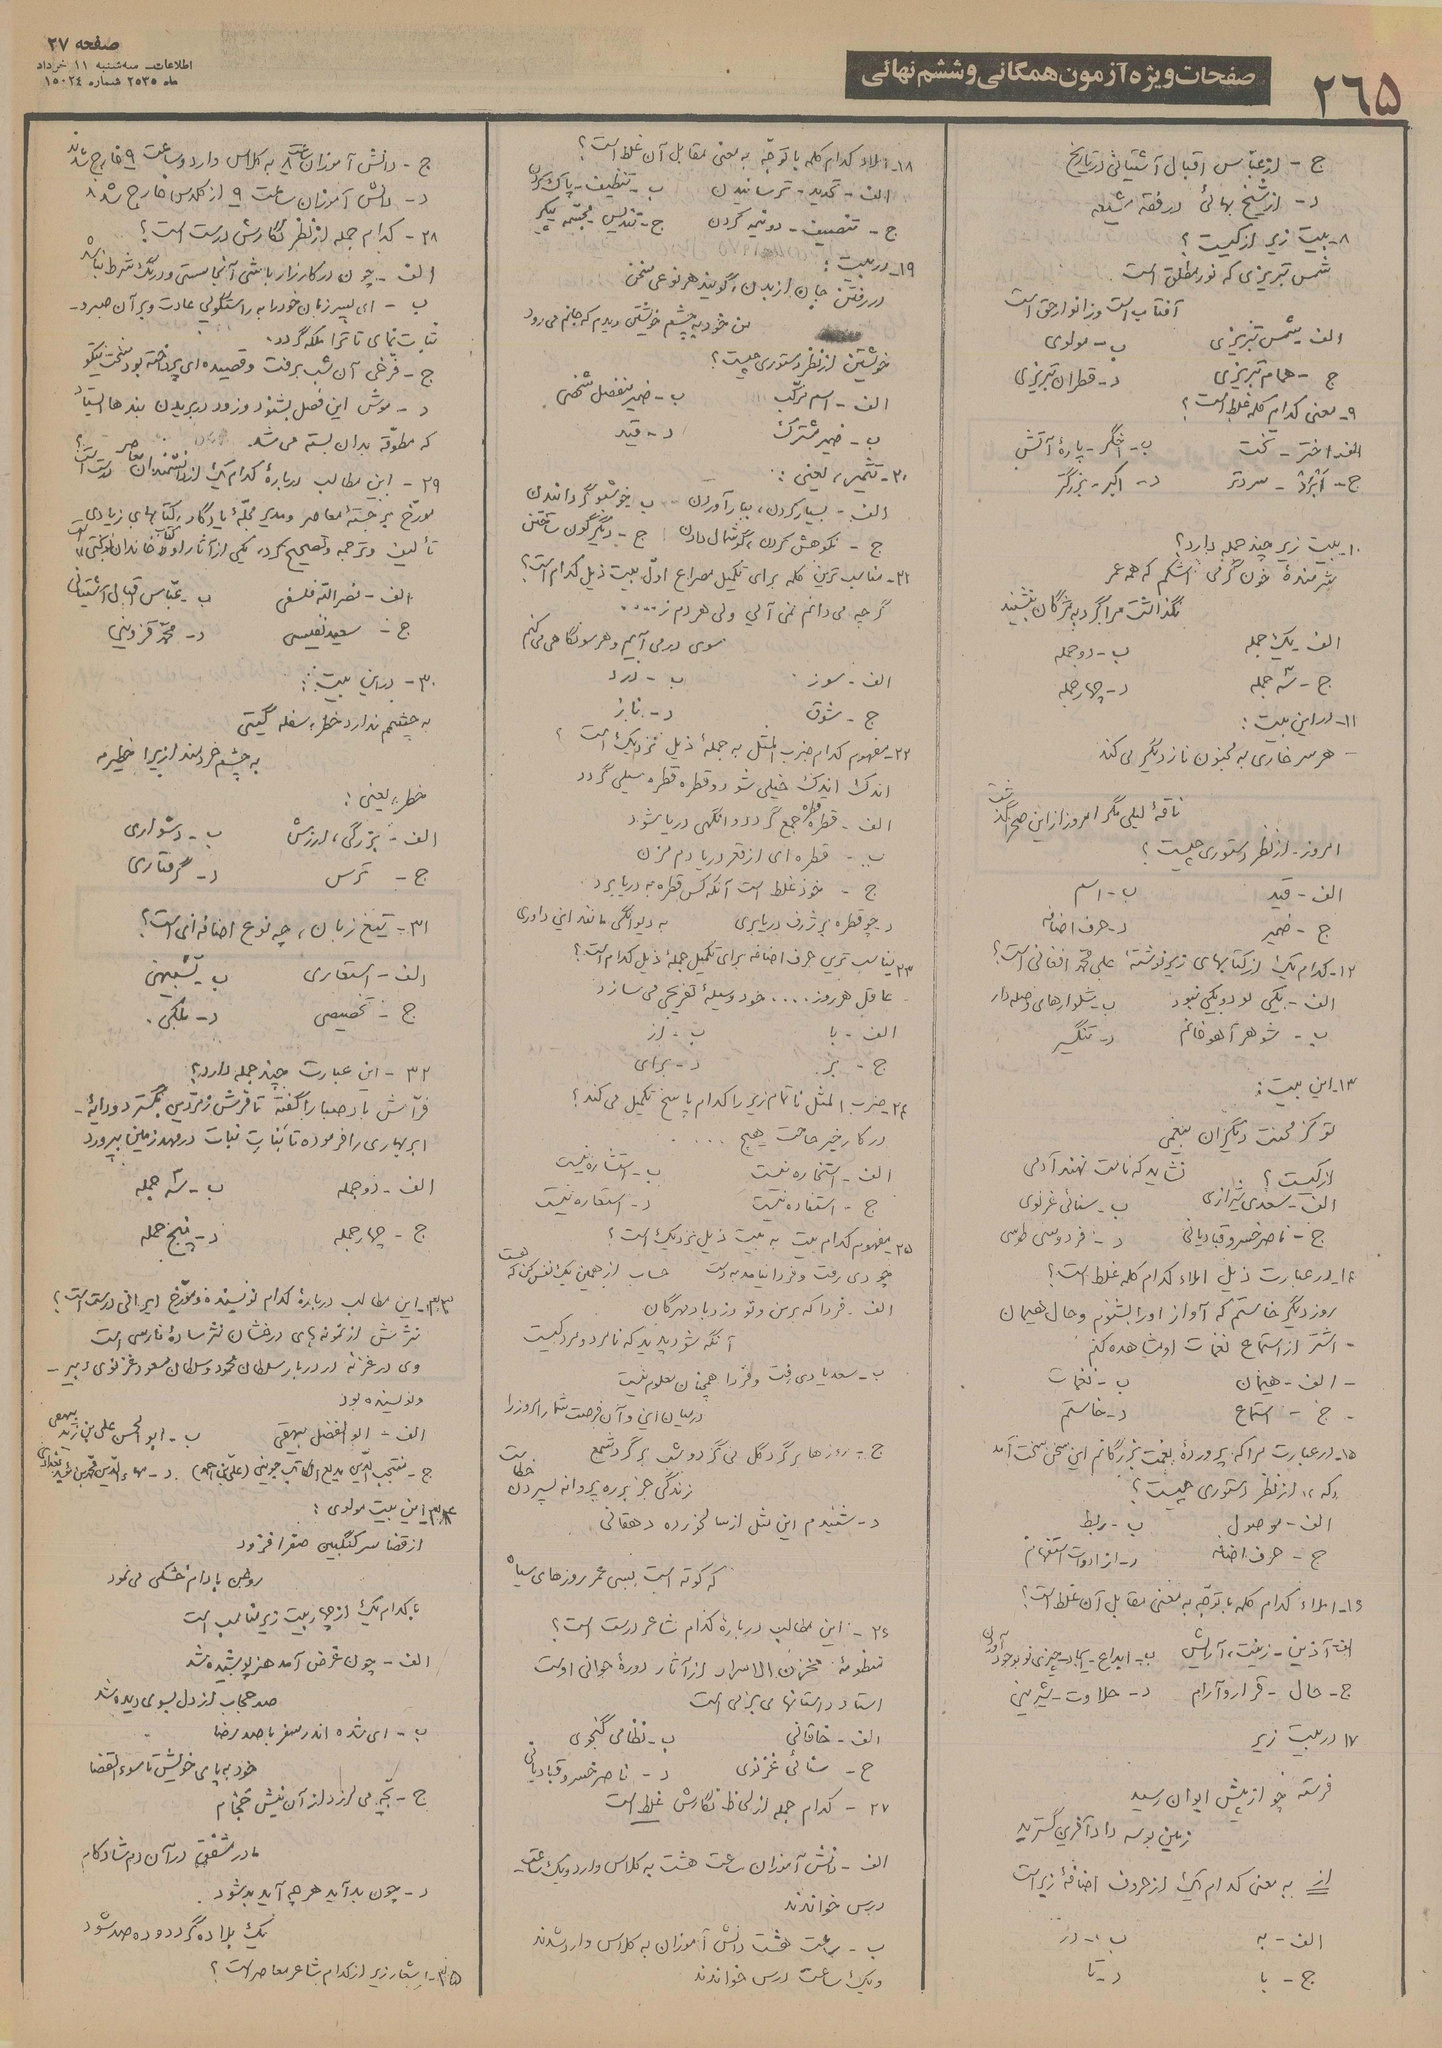 صفحه ۲۷
اطلاعات - سه‌شنبه ۱۱ خرداد
ماه ۲۵۳۵ شماره ۱۵۰۲۴
صفحات ویژه آزمون همگانی و ششم نهائی
۲۶۵
ج - از عباس اقبال آشتیانی در تاریخ
د - از شیخ بهائی در فقه شیعه
۸- بیت زیر از کیست ؟
شمس تبریزی که نور مطلق است
آفتاب است و ز انوار حق است
الف - شمس تبریزی ب - مولوی
ج - همام تبریزی د - قطران تبریزی
۹- معنی کدام کلمه غلط است ؟
الف - اختر - تخت ب - اخگر - پارهٔ آتش
ج - سردتر د - اکبر - بزرگتر
۱۰- بیت زیر چند جمله دارد؟
شرمندهٔ خون گرمی اشکم که همه عمر
نگذاشت مرا گرد به مژگان بنشیند
الف - یک جمله ب - دو جمله
ج - سه جمله د - چهار جمله
۱۱- در این بیت :
- هر سر خاری به مجنون ناز دیگر می کند
ناقهٔ لیلی مگر امروز از این صحرا گذشت
امروز - از نظر دستوری چیست ؟
الف - قید ب - اسم
ج - ضمیر د - حرف اضافه
۱۲- کدام یک از کتابهای زیر نوشتهٔ علی محمد افغانی است ؟
الف - یکی بود و یکی نبود ب - شلوارهای وصله دار
ب - شوهر آهو خانم د - تنگسیر
۱۳- این بیت :
تو کز محنت دیگران بیغمی
نشاید که نامت نهند آدمی
از کیست ؟
الف - سعدی شیرازی ب - سنائی غزنوی
ج - ناصر خسرو قبادیانی د - فردوسی طوسی
۱۴- در عبارت ذیل املاء کدام کلمه غلط است ؟
روز دیگر خاستم که آواز او را بشنوم و حال هیمان
- اشتر از استماع نغمات او مشاهده کنم
- الف - هیمان ب - نغمات
- ج - استماع د - خاستم
۱۵- در عبارت مرا که پروردهٔ نعمت بزرگانم این سخن سخت آمد
«که» از نظر دستوری چیست ؟
الف - موصول ب - ربط
ج - حرف اضافه د - از ادوات استفهام
۱۶- املاء کدام کلمه با توجه به معنی مقابل آن غلط است ؟
الف - آذین - زینت ، آرایش ب - ابداع - ایجاد چیزی نو بوجود آوردن
ج - حال - قرار و آرام د - حلاوت - شیرینی
۱۷ در بیت زیر
فرسته چو از پیش ایوان رسید
زمین بوسه داد آفرین گسترید
از به معنی کدام یک از حروف اضافهٔ زیر است
الف - به ب - در
ج - با د - تا
۱۸- املاء کدام کلمه با توجه به معنی مقابل آن غلط است ؟
الف - تحدید - ترسانیدن ب - تنظیف - پاک کردن
ج - تنصیف - دو نیمه کردن ج - تندیس مجسمه پیکر
۱۹- در بیت :
در رفتن جان از بدن ، گویند هر نوعی سخن
من خود به چشم خویشتن دیدم که جانم می رود
خویشتن از نظر دستوری چیست ؟
الف - اسم مرکب ب - ضمیر منفصل شخصی
ب - ضمیر مشترک د - قید
۲۰- تثمیر ، یعنی :
الف - بسیار کردن ، ببار آوردن ب - خوشبو گردانیدن
ج - نکوهش کردن ، گوشمال دادن ج - دیگرگون ساختن
۲۱- مناسب ترین کلمه برای تکمیل مصراع اول بیت ذیل کدام است ؟
گر چه می دانم نمی آئی ولی هر دم ز ....
سوی در می آیم و هر سو نگاهی می کنم
الف - سوز ب - درد
ج - شوق د - ناز
۲۲- مفهوم کدام ضرب المثل به جملهٔ ذیل نزدیک است ؟
اندک اندک خیلی شود و قطره قطره سیلی گردد
الف - قطره قطره جمع گردد وانگهی دریا شود
ب - قطره ای از قعر دریا دم مزن
ج - خود غلط است آنکه کس قطره به دریا برد
د - چو قطره بر ژرف دریا بری به دیوانگی ماند این داوری
۲۳- مناسب ترین حرف اضافه برای تکمیل جملهٔ ذیل کدام است ؟
عاقل هر روز .... خود وسیلهٔ تفریحی می سازد
الف - با ب - از
ج - بر د - برای
۲۴- ضرب المثل ناتمام زیر را کدام پاسخ تکمیل می کند ؟
در کار خیر حاجت هیچ ....
الف - استخاره نیست ب - استشاره نیست
ج - استفاده نیست د - استعاره نیست
۲۵- مفهوم کدام بیت به بیت ذیل نزدیک است ؟
چو دی رفت و فردا نیامد به دست حساب از همین یک نفس کن که هست
الف - فردا که بر من و تو وزد باد مهرگان
آنگه شود پدید که نامرد و مرد کیست
ب - سعدیا دی رفت و فردا همچنان معلوم نیست
در میان این و آن فرصت شمار امروز را
ج - روزها بر گرد گل می گرد و شب بر گرد شمع
زندگی جز بر ره پروانه سپردن خطاست
د - شنیدم این مثل از سالخورده دهقانی
که کوته است بسی عمر روزهای سیاه
۲۶ - این مطالب دربارهٔ کدام شاعر درست است ؟
منظومهٔ مخزن الاسرار از آثار دورهٔ جوانی اوست
استاد داستانهای بزمی است
الف - خاقانی ب - نظامی گنجوی
ج - سنائی غزنوی د - ناصر خسرو قبادیانی
۲۷ - کدام جمله از لحاظ نگارش غلط است
الف - دانش آموزان ساعت هشت به کلاس وارد و یک ساعت
درس خواندند
ب - ساعت هشت دانش آموزان به کلاس وارد شدند
و یک ساعت درس خواندند
ج - دانش آموزان ساعت ۸ به کلاس وارد و ساعت ۹ خارج شدند
د - دانش آموزان ساعت ۹ از کلاس خارج شدند
۲۸ - کدام جمله از نظر نگارش درست است ؟
الف - چون در کارزار باشی آنجا سستی و درنگ شرط نباشد
ب - ای پسر زبان خود را به راستگوئی عادت و بر آن صبر و -
ثبات نمای تا ترا ملکه گردد .
ج - فرخی آن شب برفت و قصیده ای پرداخته بود سخت نیکو
د - موش این فصل بشنود و زود در بریدن بندها ایستاد
که مطوقه بدان بسته می شد .
۲۹ - این مطالب دربارهٔ کدام یک از دانشمندان معاصر درست است ؟
مورخ برجستهٔ معاصر و مدیر مجلهٔ یادگار ، کتابهای زیادی
تألیف و ترجمه و تصحیح کرد ، یکی از آثار او کتاب خاندان نوبختی است
الف - نصرالله فلسفی ب - عباس اقبال آشتیانی
ج - سعید نفیسی د - محمد قزوینی
۳۰ - در این بیت :
به چشمم ندارد خطر ، سفله گیتی
به چشم خردمند ازیرا خطیرم
خطر ، یعنی :
الف - بزرگی ، ارزش ب - دشواری
ج - ترس د - گرفتاری
۳۱ - تیغ زبان ، چه نوع اضافه ای است ؟
الف - استعاری ب - تشبیهی
ج - تخصیصی د - ملکی .
۳۲ - این عبارت چند جمله دارد ؟
فراش باد صبا را گفته تا فرش زمردین بگسترد و دایهٔ -
ابر بهاری را فرموده تا بنات نبات در مهد زمین بپرورد
الف - دو جمله ب - سه جمله
ج - چهار جمله د - پنج جمله
۳۳- این مطالب دربارهٔ کدام نویسنده و مورخ ایرانی درست است ؟
نثرش از نمونه های درخشان نثر سادهٔ فارسی است
وی در غزنه در دربار سلطان محمود و سلطان مسعود غزنوی دبیر -
و نویسنده بود
الف - ابوالفضل بیهقی ب - ابوالحسن علی بن زید بیهقی
ج - منتجب الدین بدیع الکاتب جوینی (علی بن احمد) د - بهاء الدین محمد بن مؤید بغدادی
۳۴- این بیت مولوی :
از قضا سرکنگبین صفرا فزود
روغن بادام خشکی می نمود
با کدام یک از چهار بیت زیر متناسب است
الف - چون غرض آمد هنر پوشیده شد
صد حجاب از دل بسوی دیده شد
ب - ای شده اندر سفر با صد رضا
خود به پای خویش تا سوء القضا
ج - بچه می لرزد از آن نیش حجام
مادر مشفق در آن دم شادکام
د - چون بد آید هر چه آید بد شود
یک بلا ده گردد و ده صد شود
۳۵- اشعار زیر از کدام شاعر معاصر است ؟